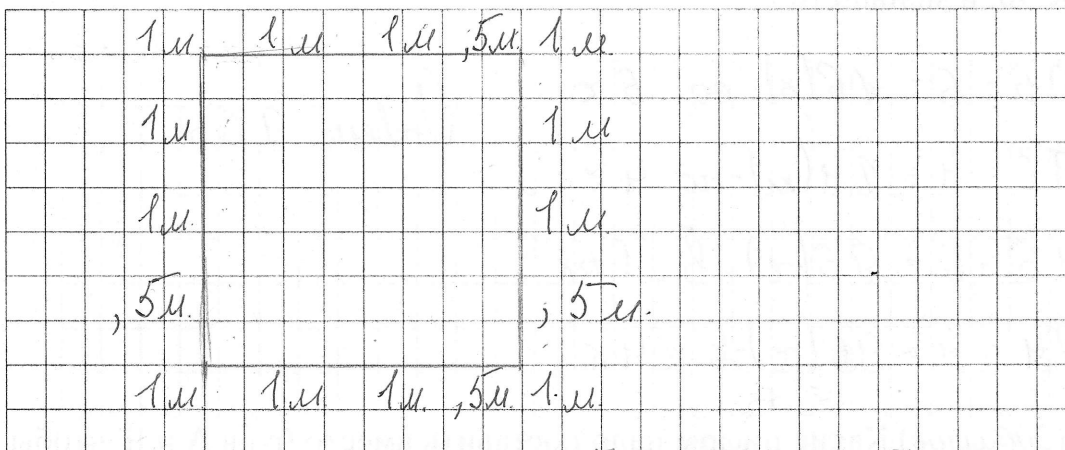 1м 1м 1м ,5м 1м
1м 1м
1м 1м
,5м. ,5м.
1м 1м 1м. ,5м. 1м.